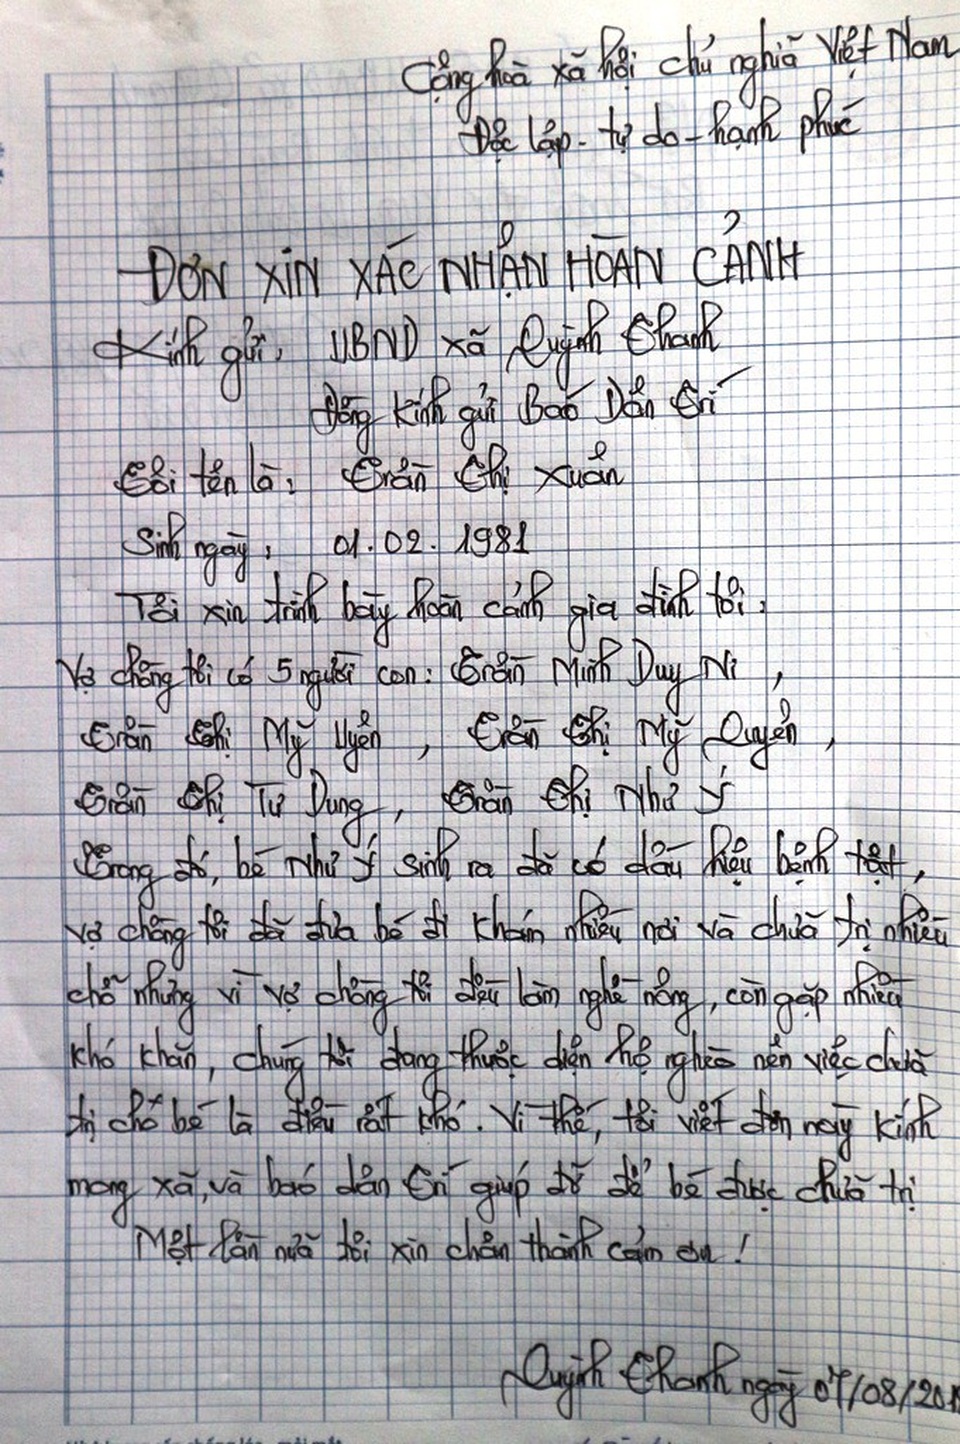 Cộng hoà xã hội chủ nghĩa Việt Nam
Độc lập - tự do - hạnh phúc
ĐƠN XIN XÁC NHẬN HOÀN CẢNH
Kính gửi: UBND xã Quỳnh Thanh
Đồng kính gửi Báo Dân Trí
Tôi tên là: Trần Thị Xuân
Sinh ngày: 01.02.1981
Tôi xin trình bày hoàn cảnh gia đình tôi:
Vợ chồng tôi có 5 người con: Trần Minh Duy Ni,
Trần Thị Mỹ Uyên, Trần Thị Mỹ Quyên,
Trần Thị Tư Dung, Trần Thị Như Ý
Trong đó, bé Như Ý sinh ra đã có dấu hiệu bệnh tật,
vợ chồng tôi đã đưa bé đi khám nhiều nơi và chữa trị nhiều
chỗ nhưng vì vợ chồng tôi đều làm nghề nông, còn gặp nhiều
khó khăn, chúng tôi đang thuộc diện hộ nghèo nên việc chữa
trị cho bé là điều rất khó. Vì thế, tôi viết đơn này kính
mong xã, và báo dân trí giúp đỡ để bé được chữa trị
Một lần nữa tôi xin chân thành cảm ơn!
Quỳnh Thanh ngày 07/08/201